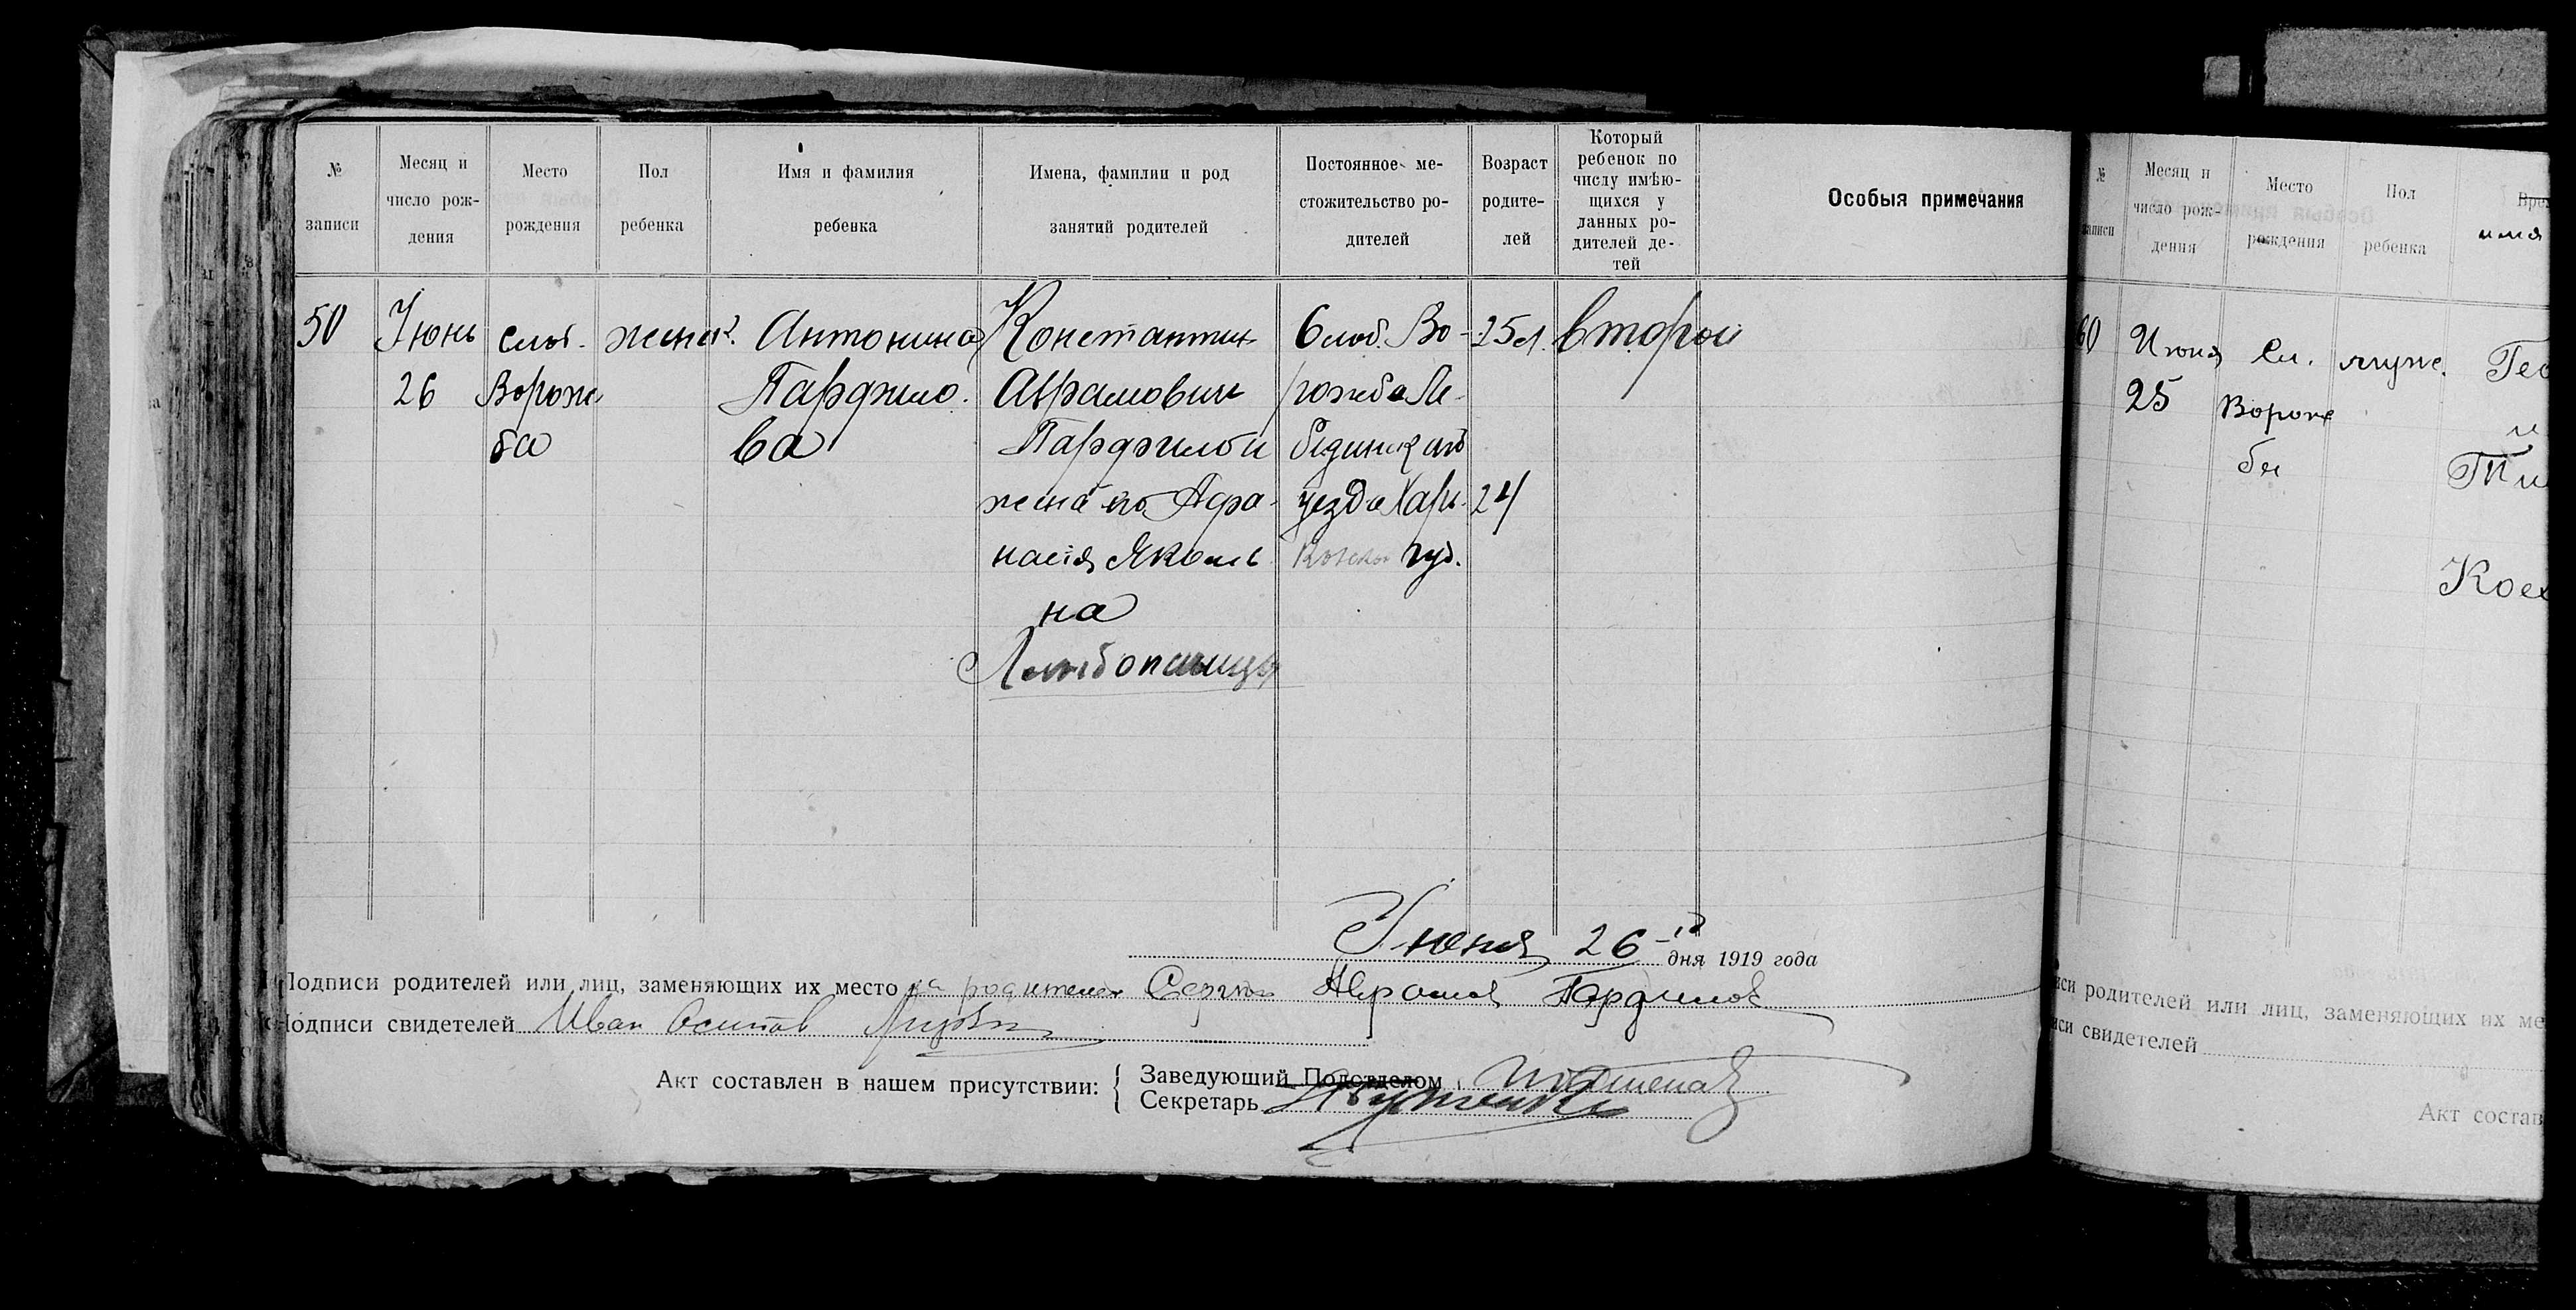 № записи
Месяц и число рож-дения
Место рождения
Пол ребенка
Имя и фамилия ребенка
Имена, фамилии и род занятий родителей
Постоянное ме-стожительство ро-дителей
Возраст родите-лей
Который ребенок по числу имѣю-щихся у данных ро-дителей де-тей
Особыя примечания
50
Июнь
26
слоб.
Ворож
ба
женск.
Антонина
Парфило
ва
Константин
Аврамович
Парфилов и
жена его Афа-
насія Яковлев
на
Слоб. Во-
рожба Ле-
бединский
уезда Харь-
ковской губ.
25 л.
24
второй
Июня 26-го дня 1919 года
Подписи родителей или лиц, заменяющих их место за родителей Сергей Аврамов Парфилов
Подписи свидетелей Иван Осипов
Акт составлен в нашем присутствии:
Заведующий Подотделом
Секретарь
№ записи
Месяц и число рож-дения
Место рождения
Пол ребенка
имя
60
Июня
25
Сл.
Ворож
бы
муже.
Гео
и
Ти
Кос
иси родителей или лиц, заменяющих их ме
иси свидетелей
Акт состав